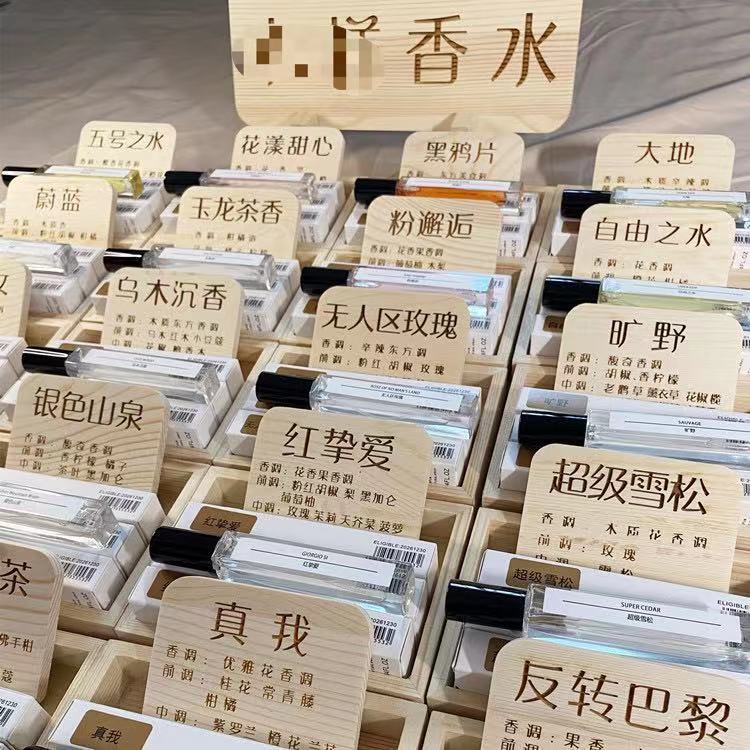 香水
五号之水
花漾甜心
黑鸦片
大地
香调：木质辛辣调
蔚蓝
香调：木质香
玉龙茶香
香调：柑橘调
粉邂逅
香调：花香果香调
前调：葡萄柚 木梨
自由之水
香调：花香调
乌木沉香
香调：木质东方香调
前调：乌木红木小豆蔻
中调：花椒 柚香木
无人区玫瑰
香调：辛辣东方调
前调：粉红胡椒 玫瑰
ROSE OF NO MAN'S LAND
无人区玫瑰
ELIGIBLE:20261230
旷野
香调：馥奇香调
前调：胡椒.香柠檬
中调：老鹳草 薰衣草 花椒 榄
旷野
SAUVAGE
旷野
银色山泉
香调：馥奇香调
前调：香柠檬 橘子
中调：茶叶 黑加仑
ELIGIBLE:20261230
红挚爱
香调：花香果香调
前调：粉红胡椒 梨 黑加仑
葡萄柚
中调：玫瑰 茉莉 天芥菜 菠萝
红挚爱
GIORGIO SI
红挚爱
ELIGIBLE:20261230
超级雪松
香调：木质花香调
前调：玫瑰
中调：雪松
超级雪松
SUPER CEDAR
超级雪松
茶
佛手柑
蔻
真我
香调：优雅花香调
前调：桂花 常青藤
柑橘
中调：紫罗兰 橙花 兰花
真我
反转巴黎
香调：果香